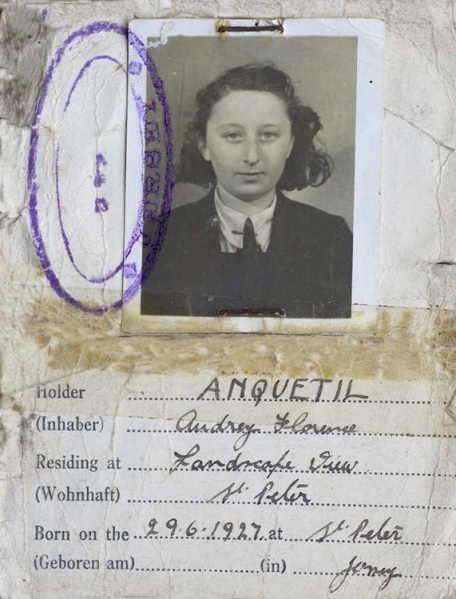 JERSEY
Holder ANQUETIL
(Inhaber) Audrey Florence
Residing at Landscape View
(Wohnhaft) St Peter
Born on the 29.6.1927 at St Peter
(Geboren am) (in) Jersey